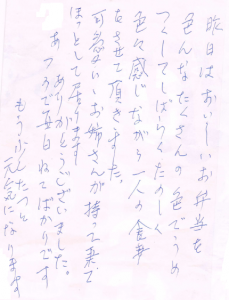 昨日はおいしいお弁当を
色んなたくさんの色でうめ
つくしてしばらくたのしく
色々感じながら一人の食事
をさせて頂きました。
可愛いいお姉さんが持って来て
ほっとして居ります
ありがとうございました。
あつるで毎日ねてばかりです
もうふんたつと
元気になります